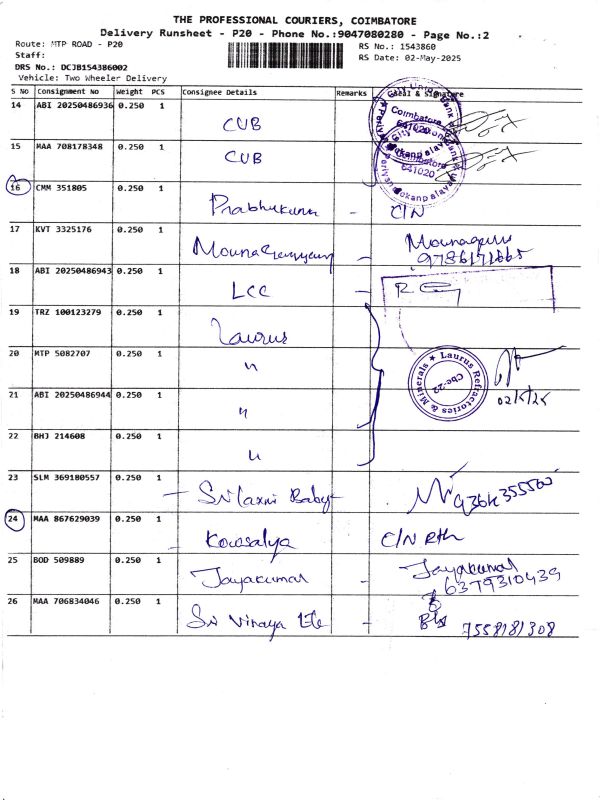 THE PROFESSIONAL COURIERS, COIMBATORE
Delivery Runsheet - P20 - Phone No.:9047080280 - Page No.:2
Route: MTP ROAD - P20
RS No.: 1543860
Staff:
RS Date: 02-May-2025
DRS No.: DCJB154386002
Vehicle: Two Wheeler Delivery
S No Consignment No Weight PCS Consignee Details Remarks Seal & Signature
14 ABI 20250486936 0.250 1 CUB
Coimbatore
641020
15 MAA 708178348 0.250 1 CUB
Coimbatore
641020
16 CMM 351805 0.250 1 Prabhukumar - C/N
17 KVT 3325176 0.250 1 - Mounaguru
18 ABI 20250486943 0.250 1 LCC -
19 TRZ 100123279 0.250 1 Laurus
20 MTP 5082707 0.250 1 "
Laurus Refractories & Minerals
Cbe-22
02/5/25
21 ABI 20250486944 0.250 1 "
22 BHJ 214608 0.250 1 "
23 SLM 369180557 0.250 1 - Sri Laxmi Baby -
24 MAA 867629039 0.250 1 - Kowsalya C/N
25 BOD 509889 0.250 1 Jayakumar - Jayakumar
6379310439
26 MAA 706834046 0.250 1 Sri Vinaya - 7558181308